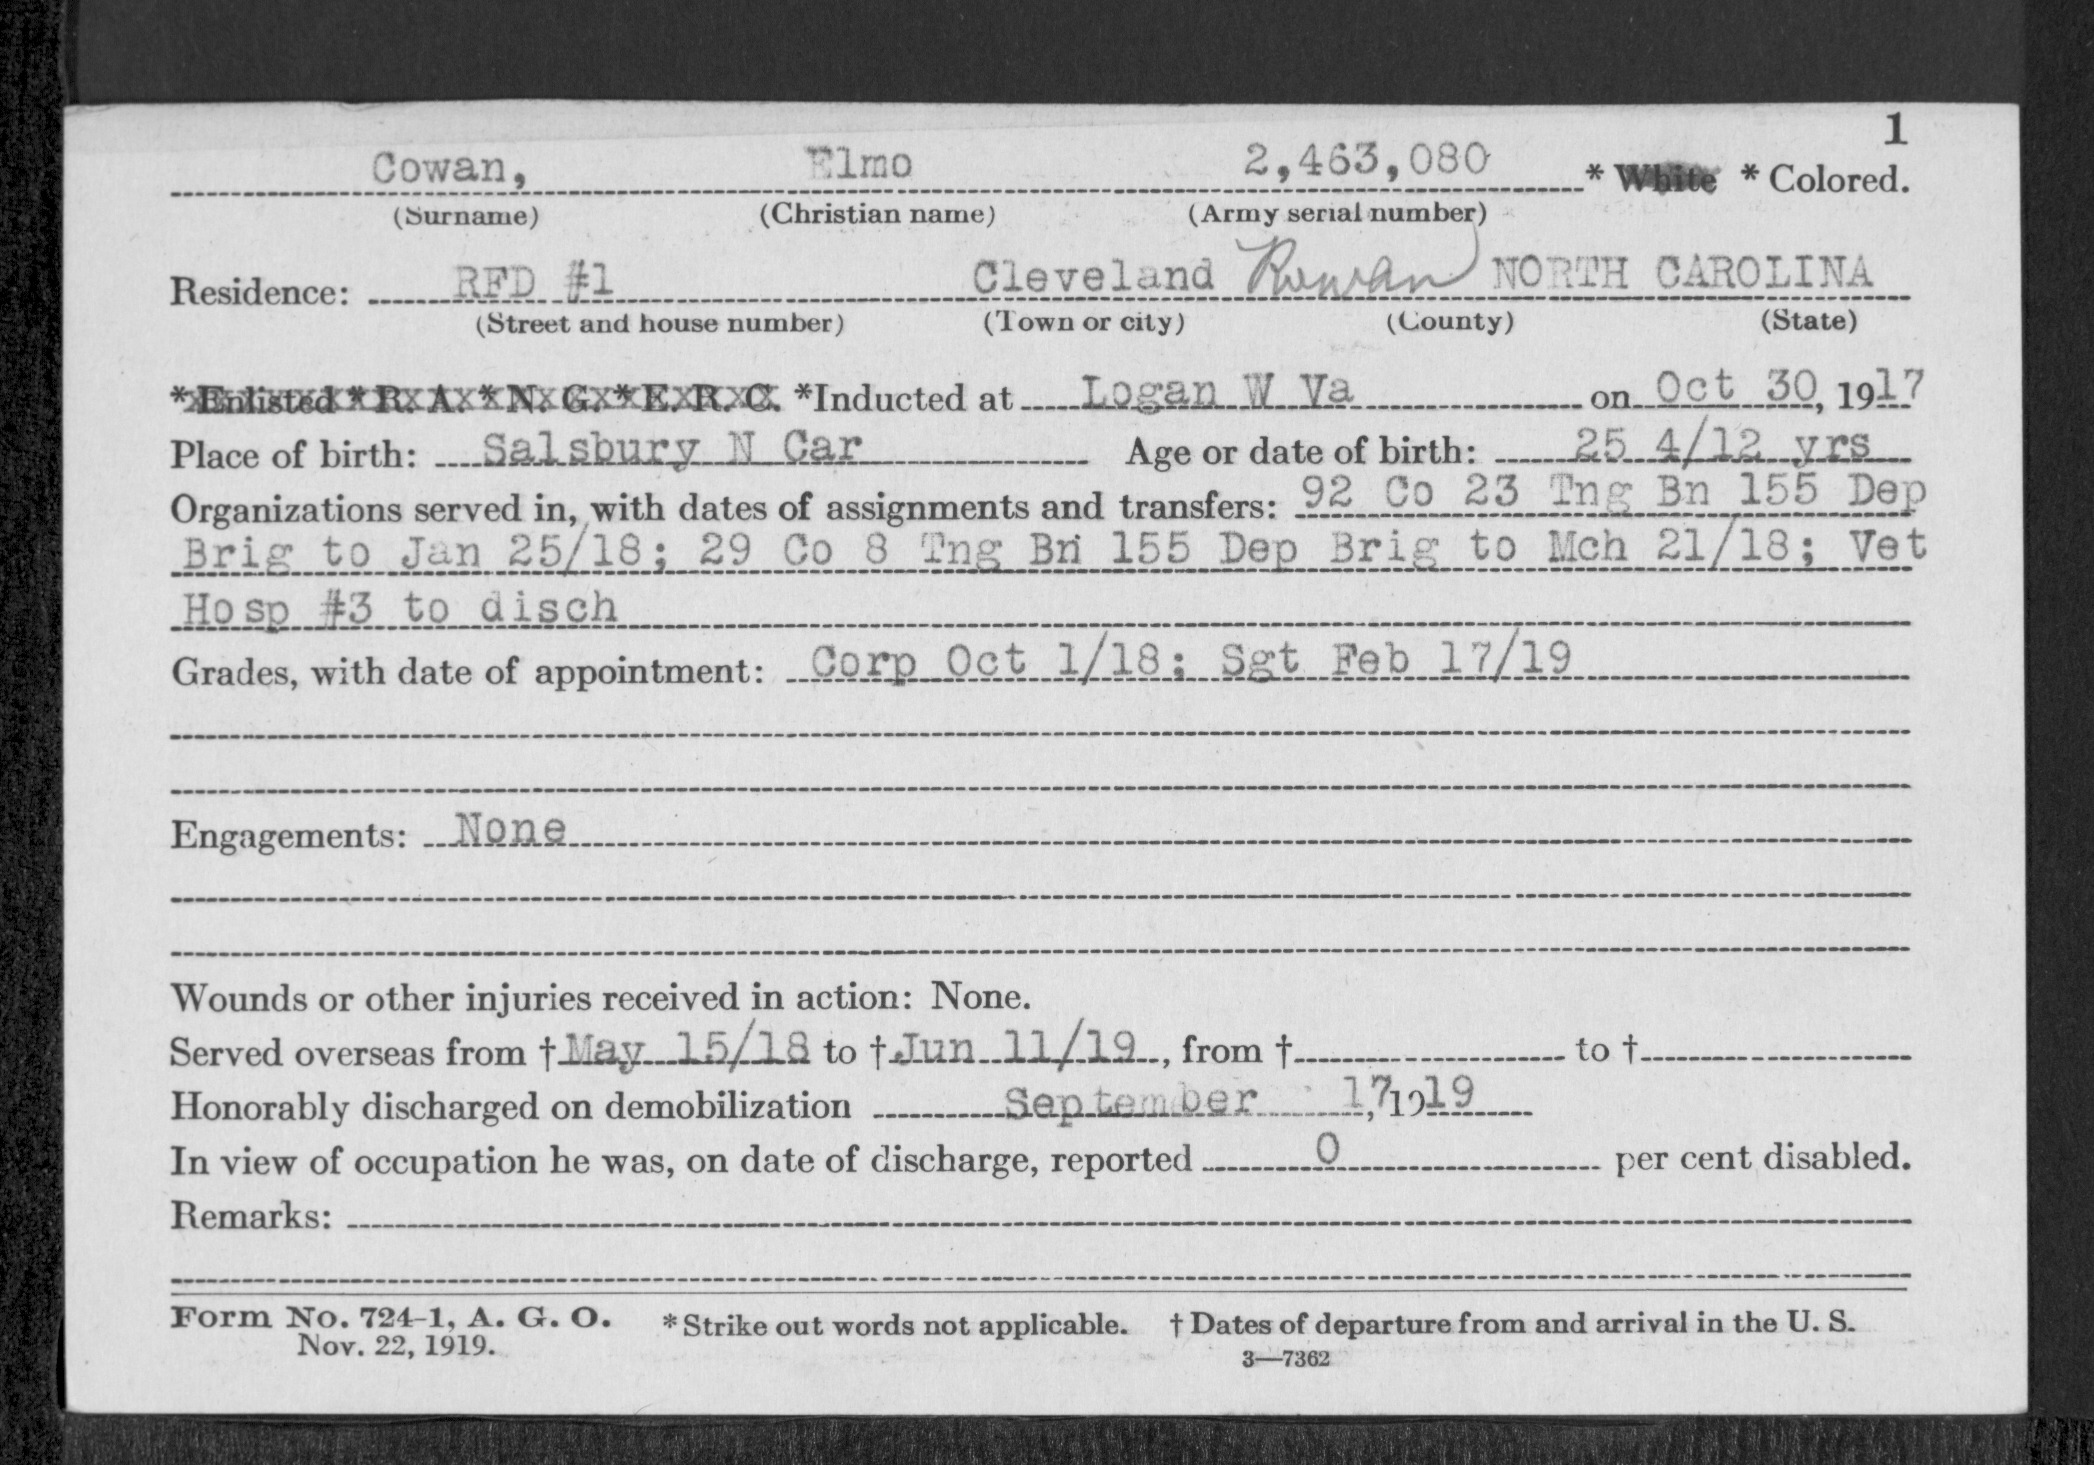 1
Cowan, Elmo 2,463,080 * White * Colored.
(Surname) (Christian name) (Army serial number)
Residence: RFD #1 Cleveland Rowan NORTH CAROLINA
(Street and house number) (Town or city) (County) (State)
* Enlisted * R. A. * N. G. * E. R. C. *Inducted at Logan W Va on Oct 30, 1917
Place of birth: Salsbury N Car Age or date of birth: 25 4/12 yrs
Organizations served in, with dates of assignments and transfers: 92 Co 23 Tng Bn 155 Dep
Brig to Jan 25/18; 29 Co 8 Tng Bn 155 Dep Brig to Mch 21/18; Vet
Hosp #3 to disch
Grades, with date of appointment: Corp Oct 1/18; Sgt Feb 17/19
Engagements: None
Wounds or other injuries received in action: None.
Served overseas from † May 15/18 to † Jun 11/19, from † to †
Honorably discharged on demobilization September 17, 1919
In view of occupation he was, on date of discharge, reported 0 per cent disabled.
Remarks:
Form No. 724-1, A. G. O. * Strike out words not applicable. † Dates of departure from and arrival in the U. S.
Nov. 22, 1919. 3—7362